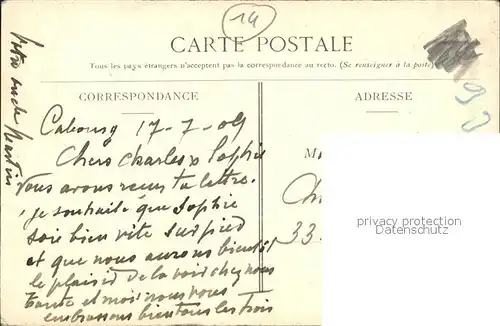 14
CARTE POSTALE
Tous les pays étrangers n'acceptent pas la correspondance au recto. (Se renseigner à la poste)
CORRESPONDANCE
Cabourg 17-7-09
Chers Charles & Sophie
Vous avons reçu ta lettre.
je souhaite que Sophie
soie bien vite sur pied
et que nous aurons bientôt
le plaisir de la voir chez nous
tante et moi nous vous
embrassons bien tous les trois
votre oncle Martin
ADRESSE
M
Ch
33
privacy protection
Datenschutz